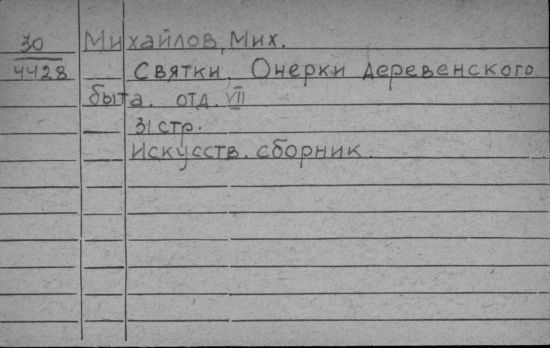 30 Михайлов, Мих.
4428 Святки. Очерки деревенского
быта. отд. VII
31 стр.
Искусств. сборник.